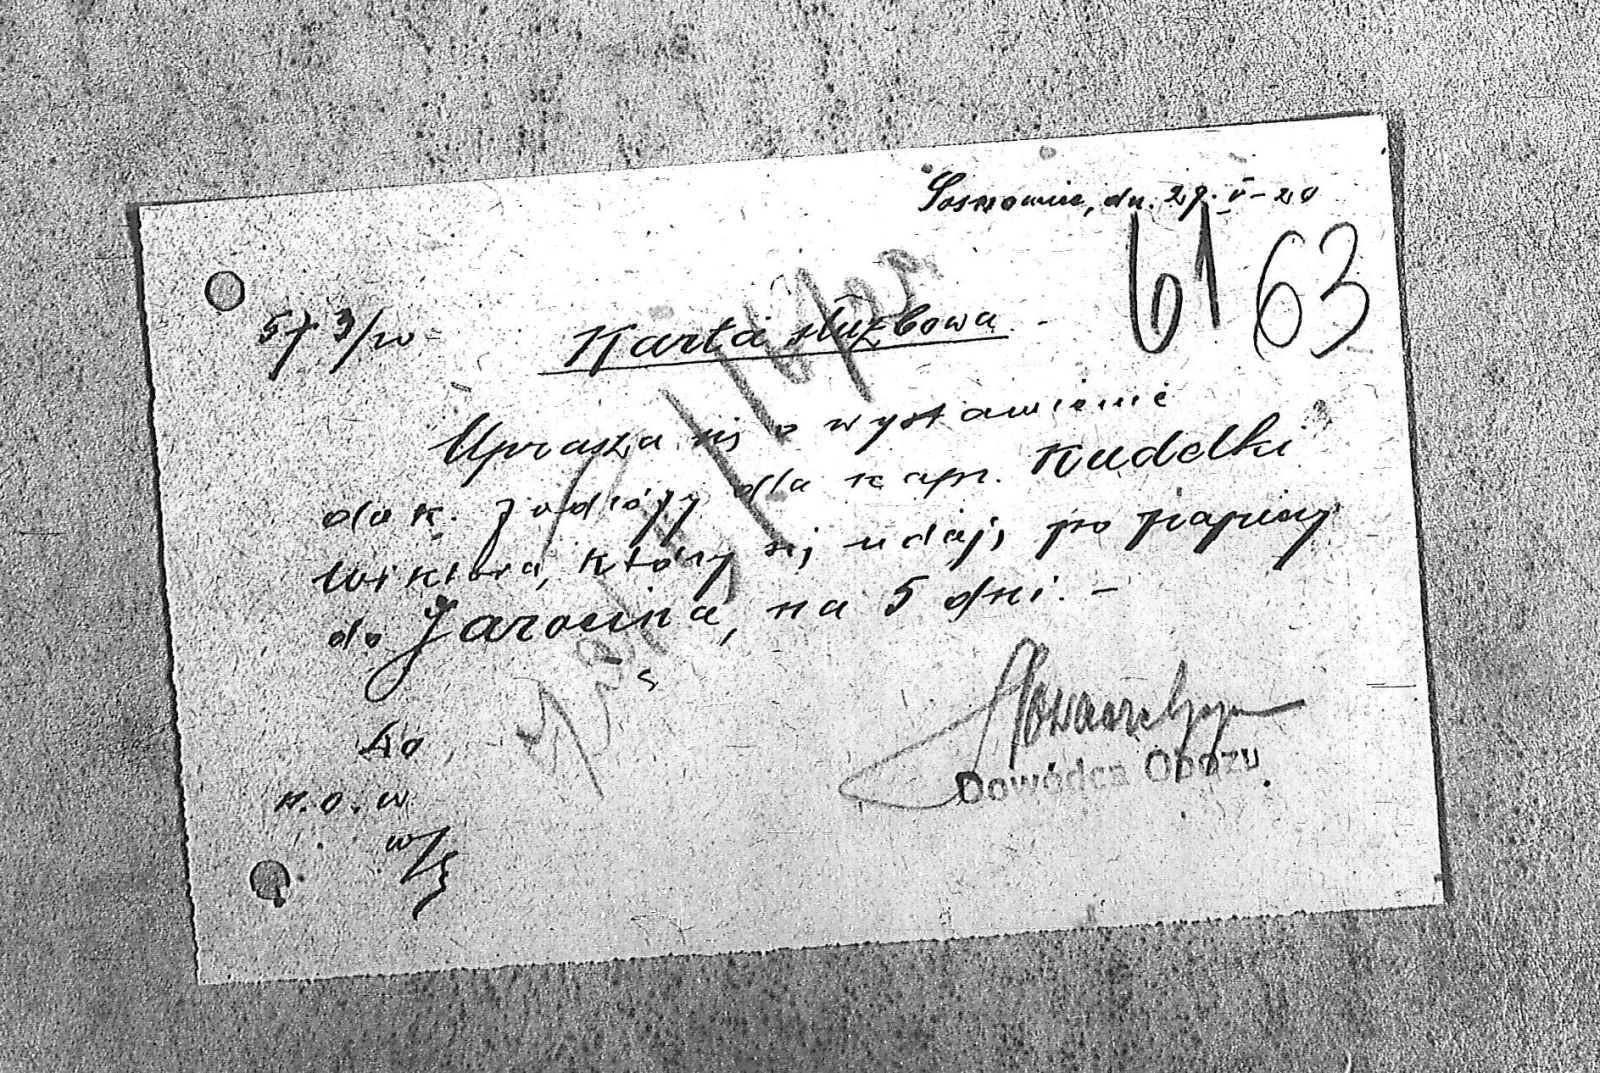 Sosnowiec, dn. 27. V - 20
61 63
573/20
Karta służbowa
Uprasza się o wystawienie
dok. podróży dla kapr. Kudelki
Wiktora, który się udaję po papiery
do Jarocina, na 5 dni. -
Do
P.O.W
w/s
Dowódca Obozu